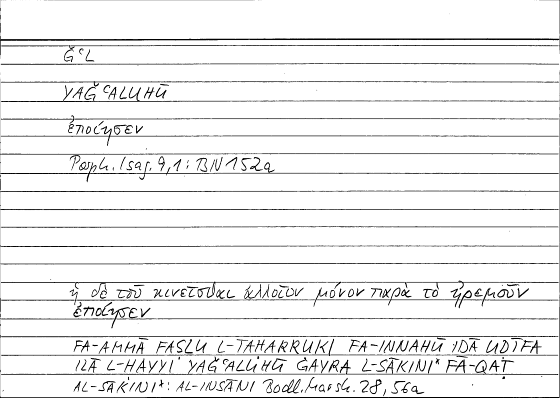 ǦʿL
YAǦʿALUHŪ
ἐποίησεν
Porph. Isag. 9,1: BN 152a
ἡ δὲ τοῦ κινεῖσθαι ἀλλοῖον μόνον παρὰ τὸ ἠρεμοῦν
ἐποίησεν
FA-AMMĀ FAṢLU L-TAḤARRUKI FA-INNAHŪ IḎĀ UḌĪFA
ILĀ L-ḤAYYI YAǦʿALUHŪ ĠAYRA L-SĀKINI* FA-QAṬ
AL-SĀKINI*: AL-INSĀNI Bodl. Marsh. 28, 56a